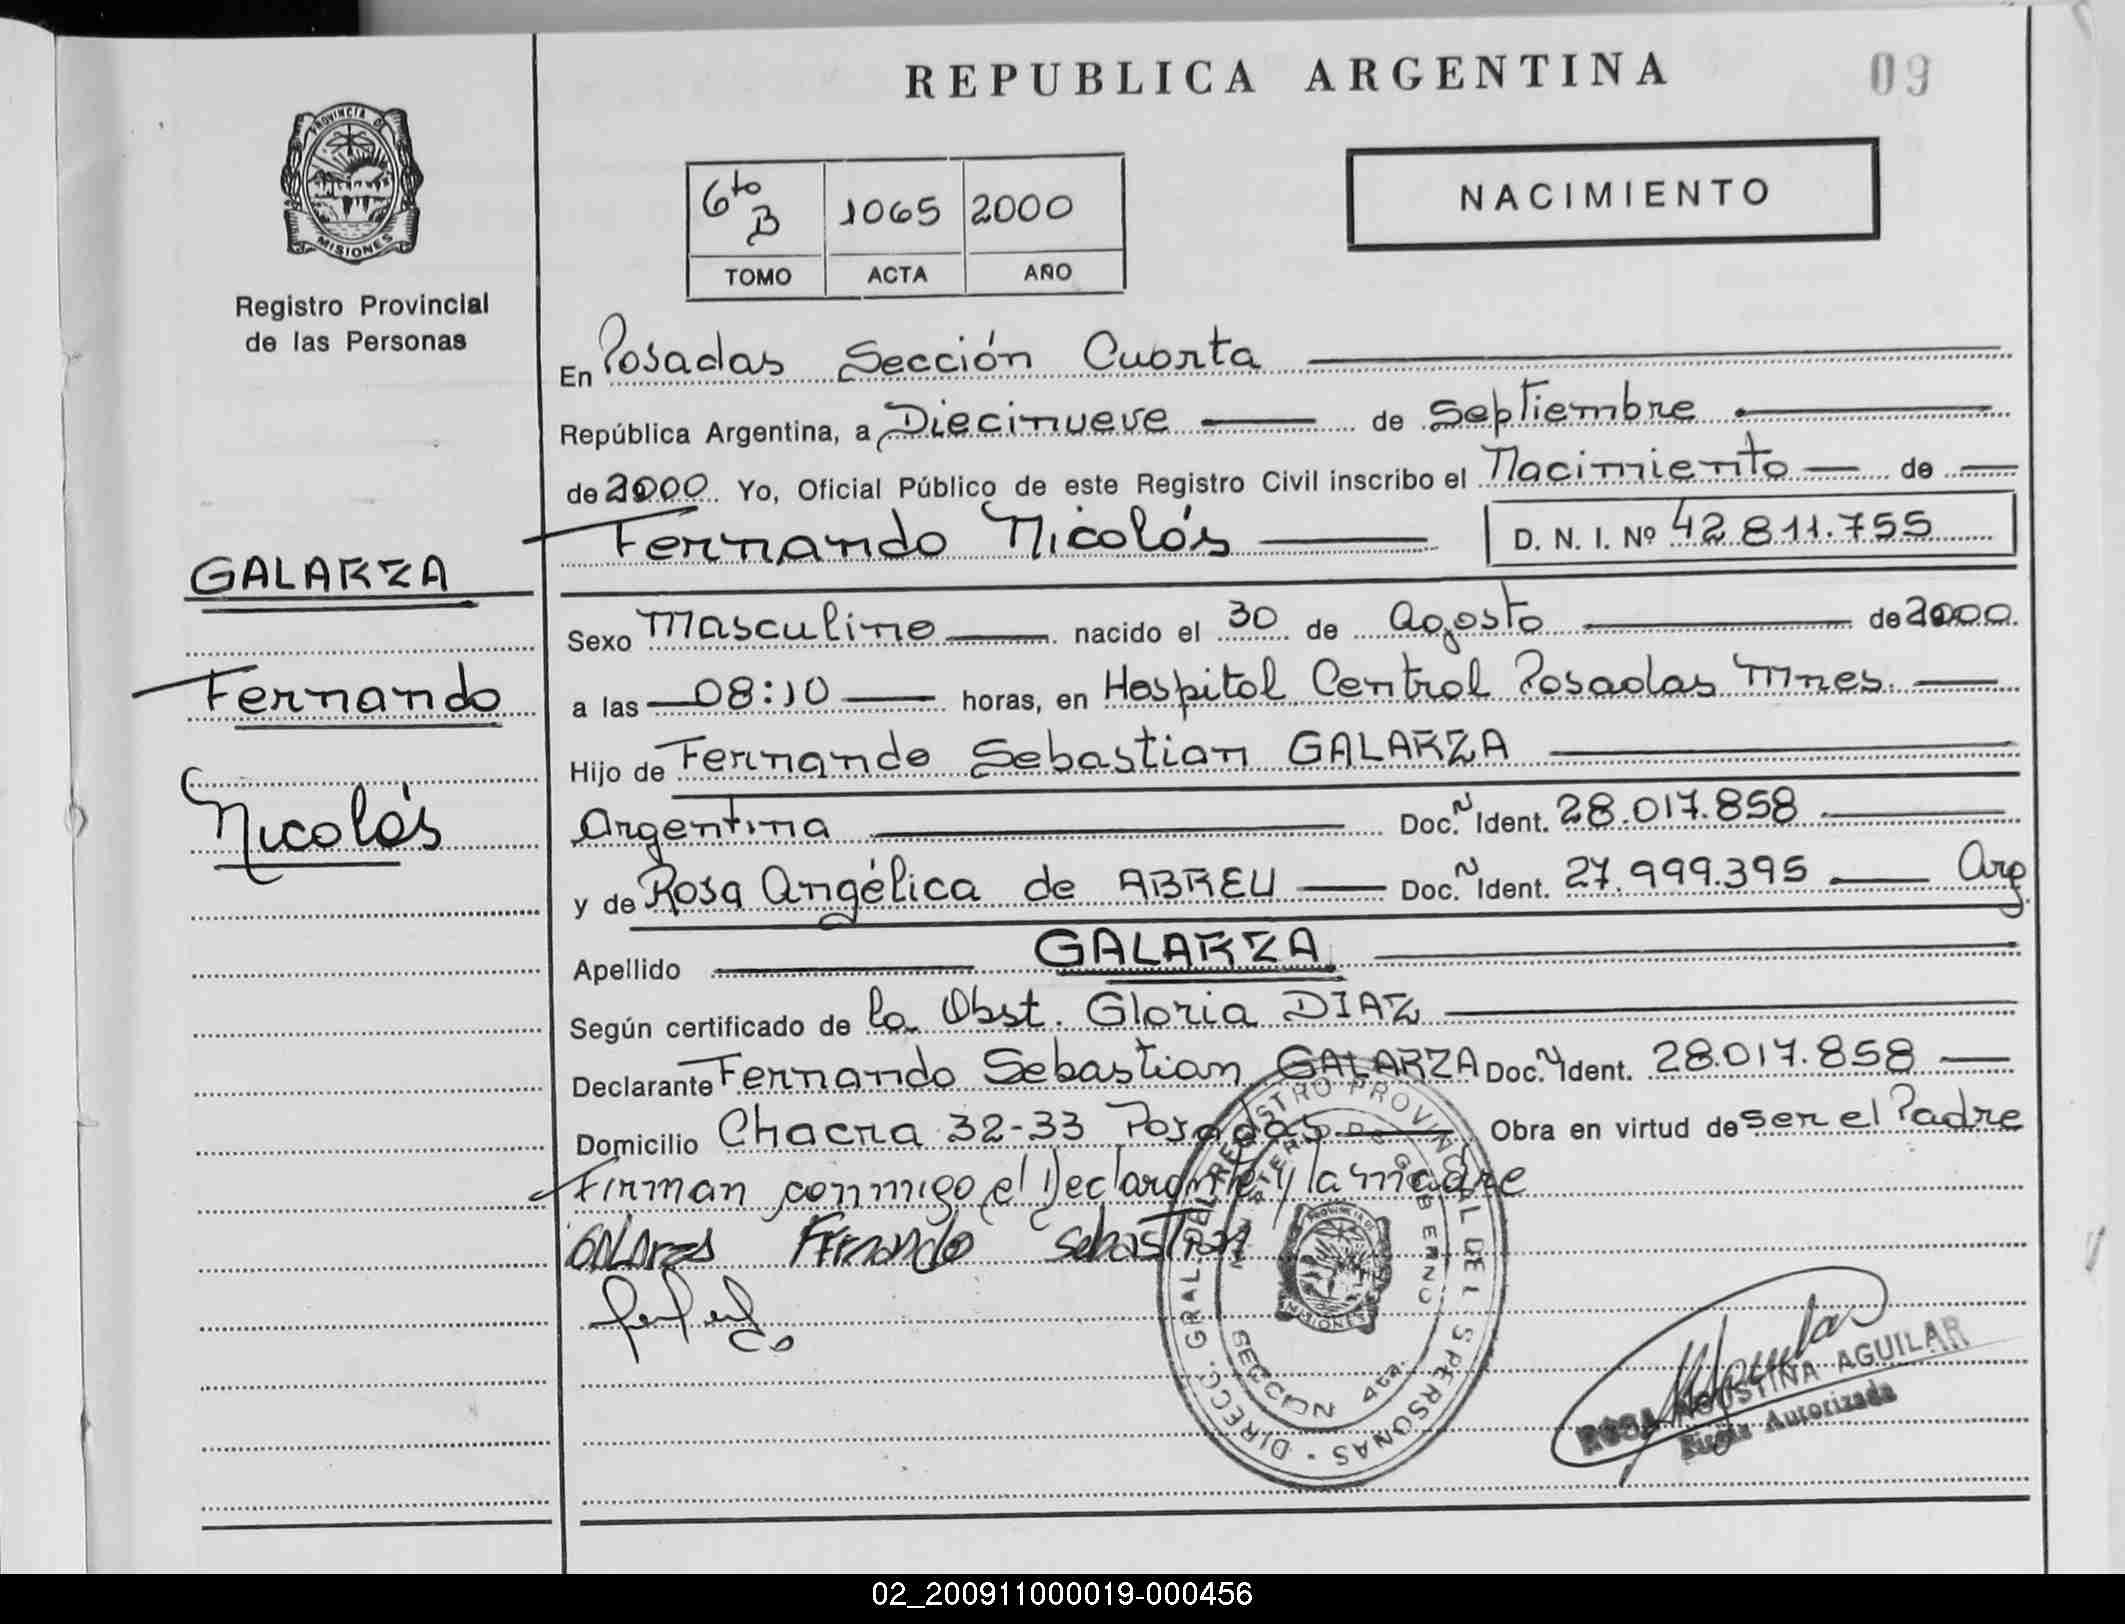 REPUBLICA ARGENTINA
09
PROVINCIA DE
MISIONES
Registro Provincial
de las Personas
6to B 1065 2000
TOMO ACTA AÑO
NACIMIENTO
En Posadas Sección Cuarta
República Argentina, a Diecinueve de Septiembre
de 2000 Yo, Oficial Público de este Registro Civil inscribo el Nacimiento de
Fernando Nicolás D. N. I. Nº 42.811.755
GALARZA
Fernando
Nicolás
Sexo Masculino nacido el 30 de Agosto de 2000
a las 08:10 horas, en Hospital Central Posadas Mnes.
Hijo de Fernando Sebastian GALARZA
Argentina Doc. Ident. 28.017.858
y de Rosa Angélica de ABREU Doc. Ident. 27.999.395 Arg.
Apellido GALARZA
Según certificado de la Obst. Gloria DIAZ
Declarante Fernando Sebastian GALARZA Doc. Ident. 28.017.858
Domicilio Chacra 32-33 Posadas Obra en virtud de ser el Padre
Firman conmigo el Declarante y la madre
GALARZA Fernando Sebastian
DIRECC. GRAL. DEL REGISTRO PROVINCIAL DE LAS PERSONAS
MINISTERIO DE GOBIERNO
SECCION 4ta.
PROVINCIA DE
MISIONES
ROSA AGUSTINA AGUILAR
Firma Autorizada
02_200911000019-000456